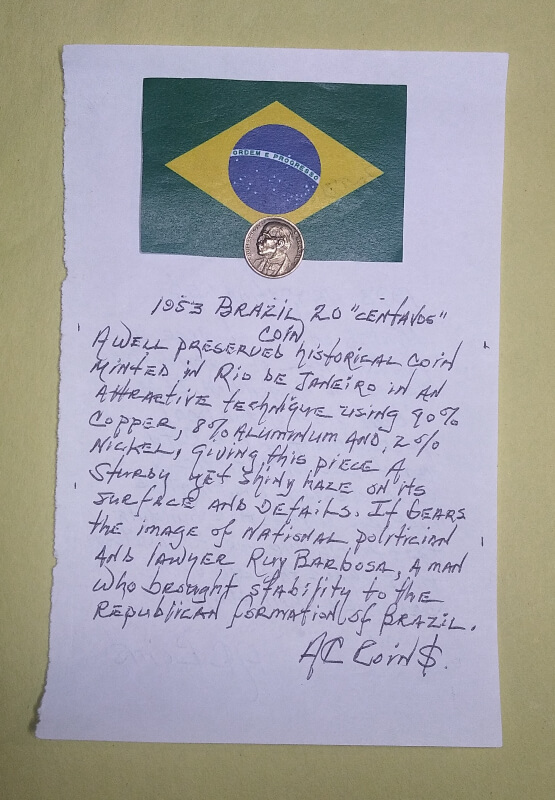 ORDEM E PROGRESSO
1953 BRAZIL 20 "CENTAVOS"
COIN
A WELL PRESERVED HISTORICAL COIN
MINTED IN RIO DE JANEIRO IN AN
ATTRACTIVE TECHNIQUE USING 90%
COPPER, 8% ALUMINUM AND, 2%
NICKEL, GIVING THIS PIECE A
STURDY YET SHINY HAZE ON ITS
SURFACE AND DETAILS. IT BEARS
THE IMAGE OF NATIONAL POLITICIAN
AND LAWYER RUY BARBOSA, A MAN
WHO BROUGHT STABILITY TO THE
REPUBLICAN FORMATION OF BRAZIL.
AC COIN$.